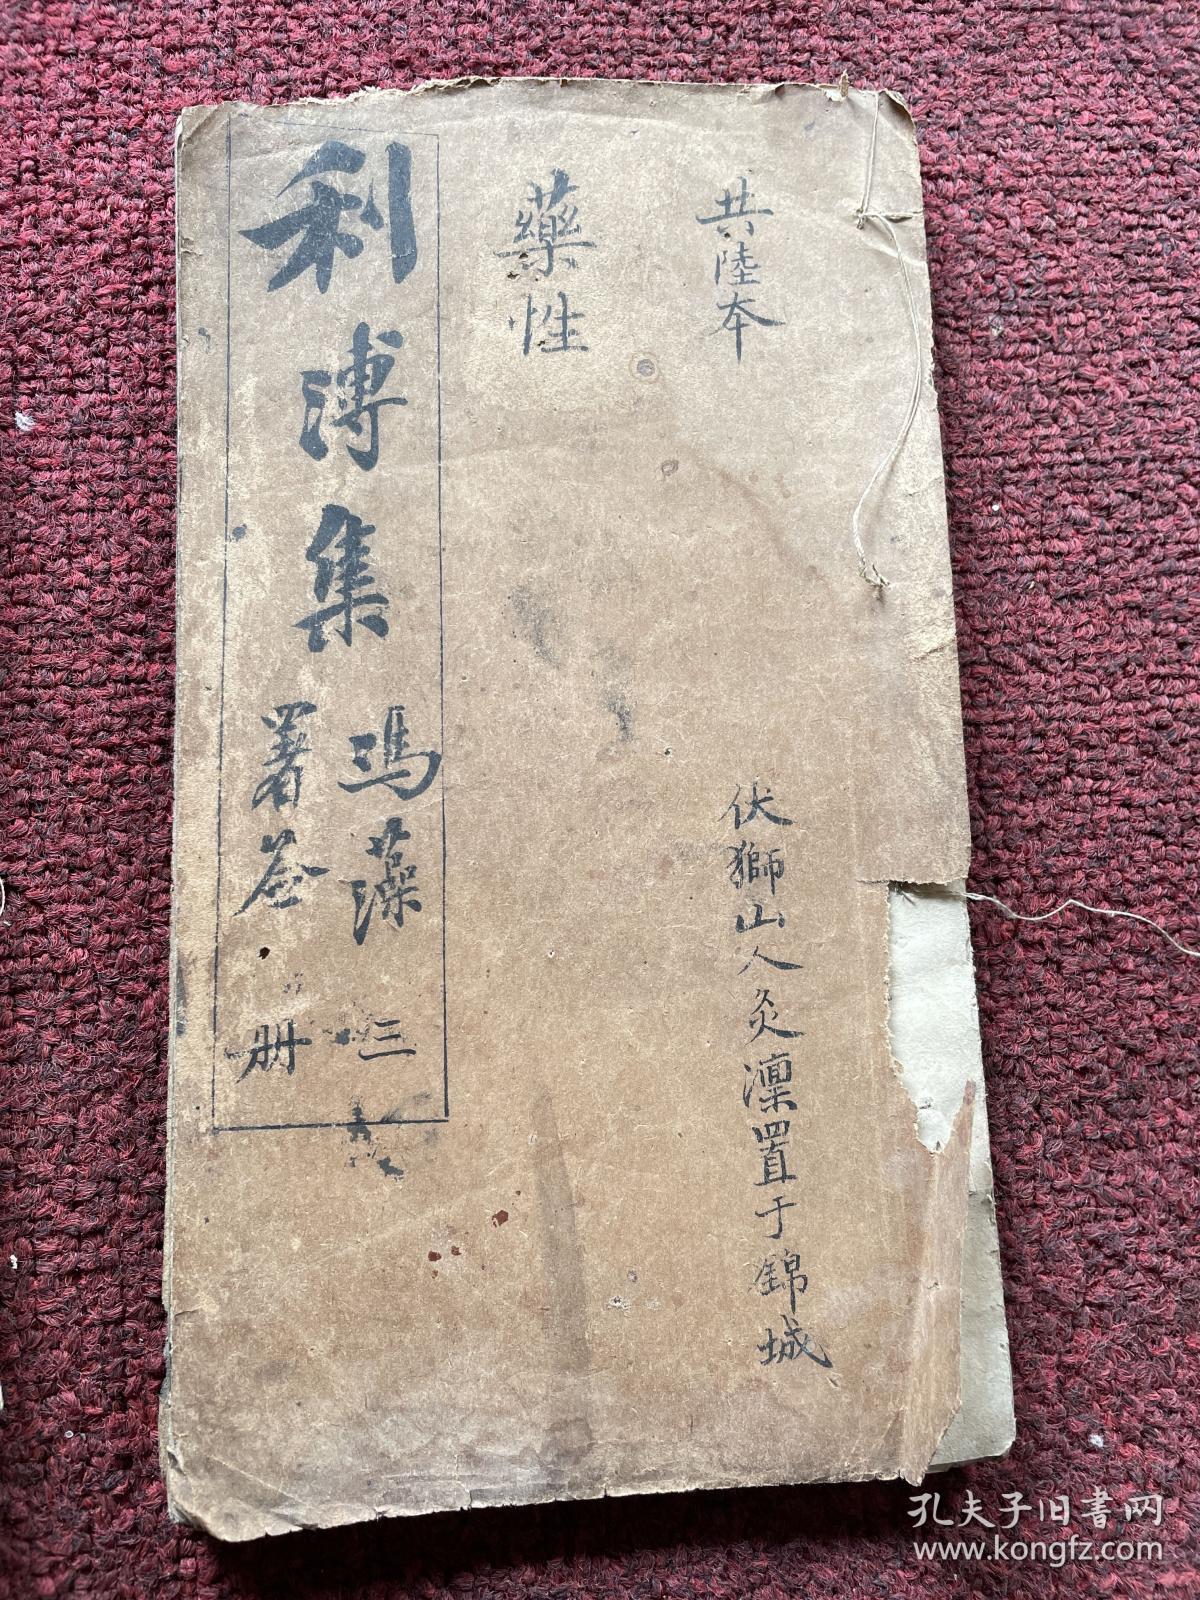 共陸本
藥性
伏獅山人灸凜置于錦城
利溥集
馮藻
署荃
三
册
孔夫子旧书网
www.kongfz.com